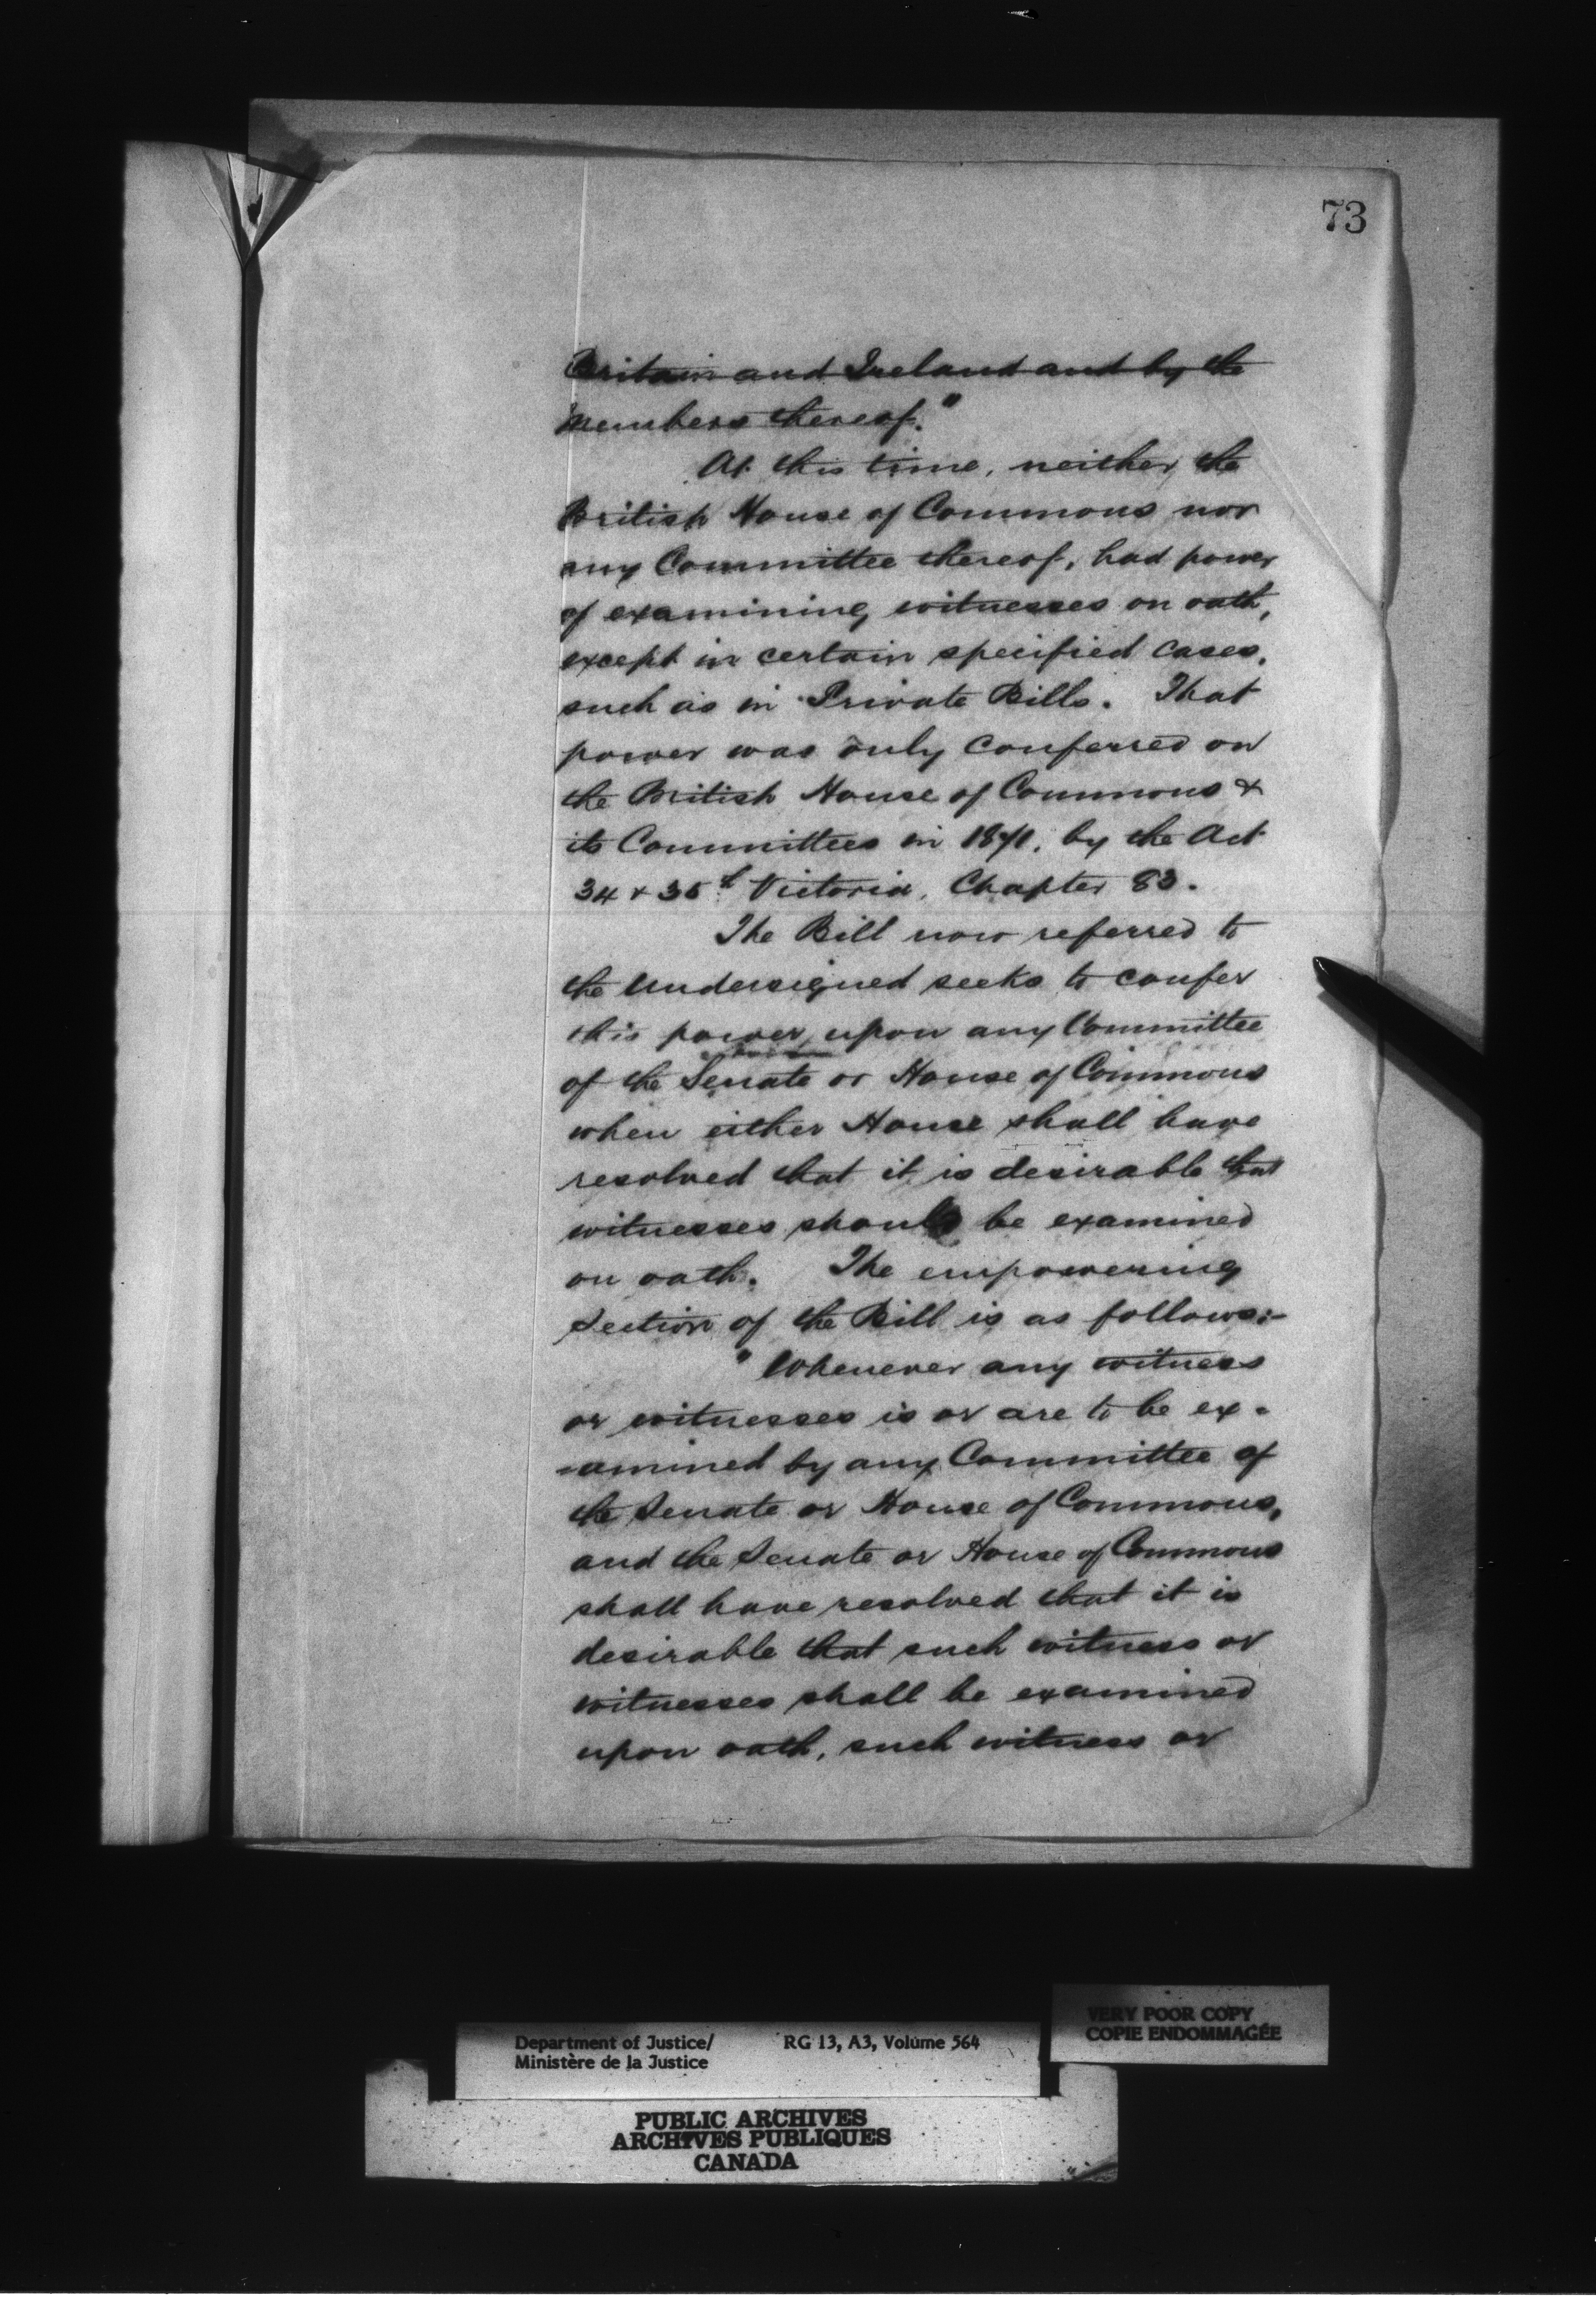 73
Britain and Ireland and by the
Members thereof."
At this time, neither the
British House of Commons nor
any Committee thereof, had power
of examining witnesses on oath,
except in certain specified cases,
such as in Private Bills. That
power was only conferred on
the British House of Commons &
its Committees in 1871, by the Act
34 & 35th Victoria, Chapter 83.
The Bill now referred to
the undersigned seeks to confer
this power upon any Committee
of the Senate or House of Commons
when either House shall have
resolved that it is desirable that
witnesses should be examined
on oath. The empowering
Section of the Bill is as follows:-
"Whenever any witness
or witnesses is or are to be ex-
-amined by any Committee of
the Senate or House of Commons,
and the Senate or House of Commons
shall have resolved that it is
desirable that such witness or
witnesses shall be examined
upon oath, such witness or
VERY POOR COPY
COPIE ENDOMMAGÉE
Department of Justice/ RG 13, A3, Volume 564
Ministère de la Justice
PUBLIC ARCHIVES
ARCHIVES PUBLIQUES
CANADA